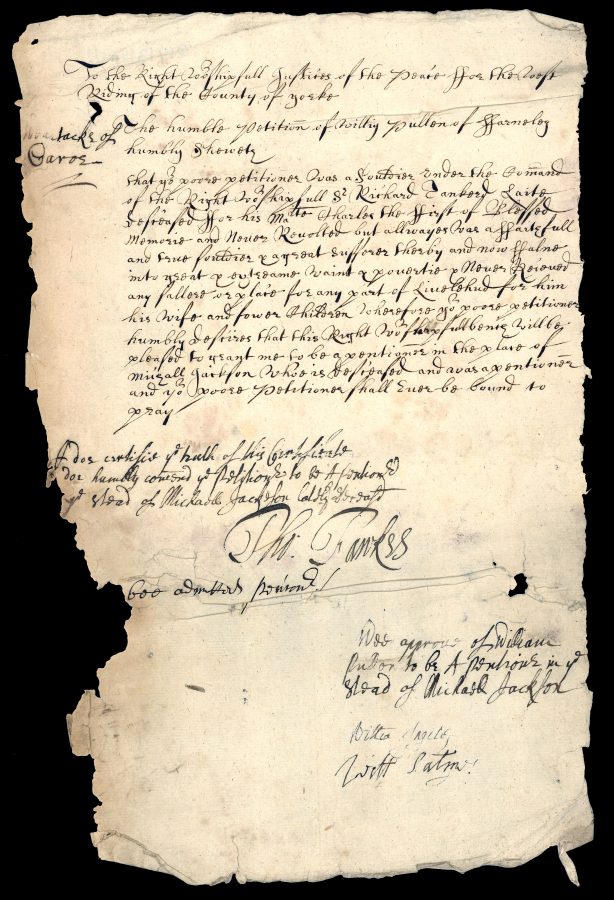 To the Right Worshipfull Justices of the Peace ffor the West
Riding of the County of Yorke
The humble Petition of Willm Pullen of ffarneley
humbly Sheweth
Jacks of
that yor poore petitioner was a Souldier under the Comand
of the Right Worshipfull Sr Richard Tankerd Laite
desceased ffor his Matie Charles the first of Blessed
Memorie and Never Revolted but allwayes was a ffaithfull
and true souldier & a great sufferer therby and now ffalne
into great & extreame waint & povertie & Never Reieved
any sallere or place for any part of Livelehud for him
his wife and fower Children Wherefore yor poore petitioner
humbly desires that this Right Worshipfull bench will be
pleased to grant me to be a pentioner in the place of
Michall Jackson Whoe is desceased and was a pentioner
and yor poore Petitioner shall Ever be bound to
pray
I doe certifie ye truth of this Certificate
& doe humbly comend ye Petitioner to be A pentioner
ye stead of Michaell Jackson lately deceased
Tho: Fawkes
bee admitted pentionr
Wee approve of William
to be A pentioner in ye
stead of Michaell Jackson
Will